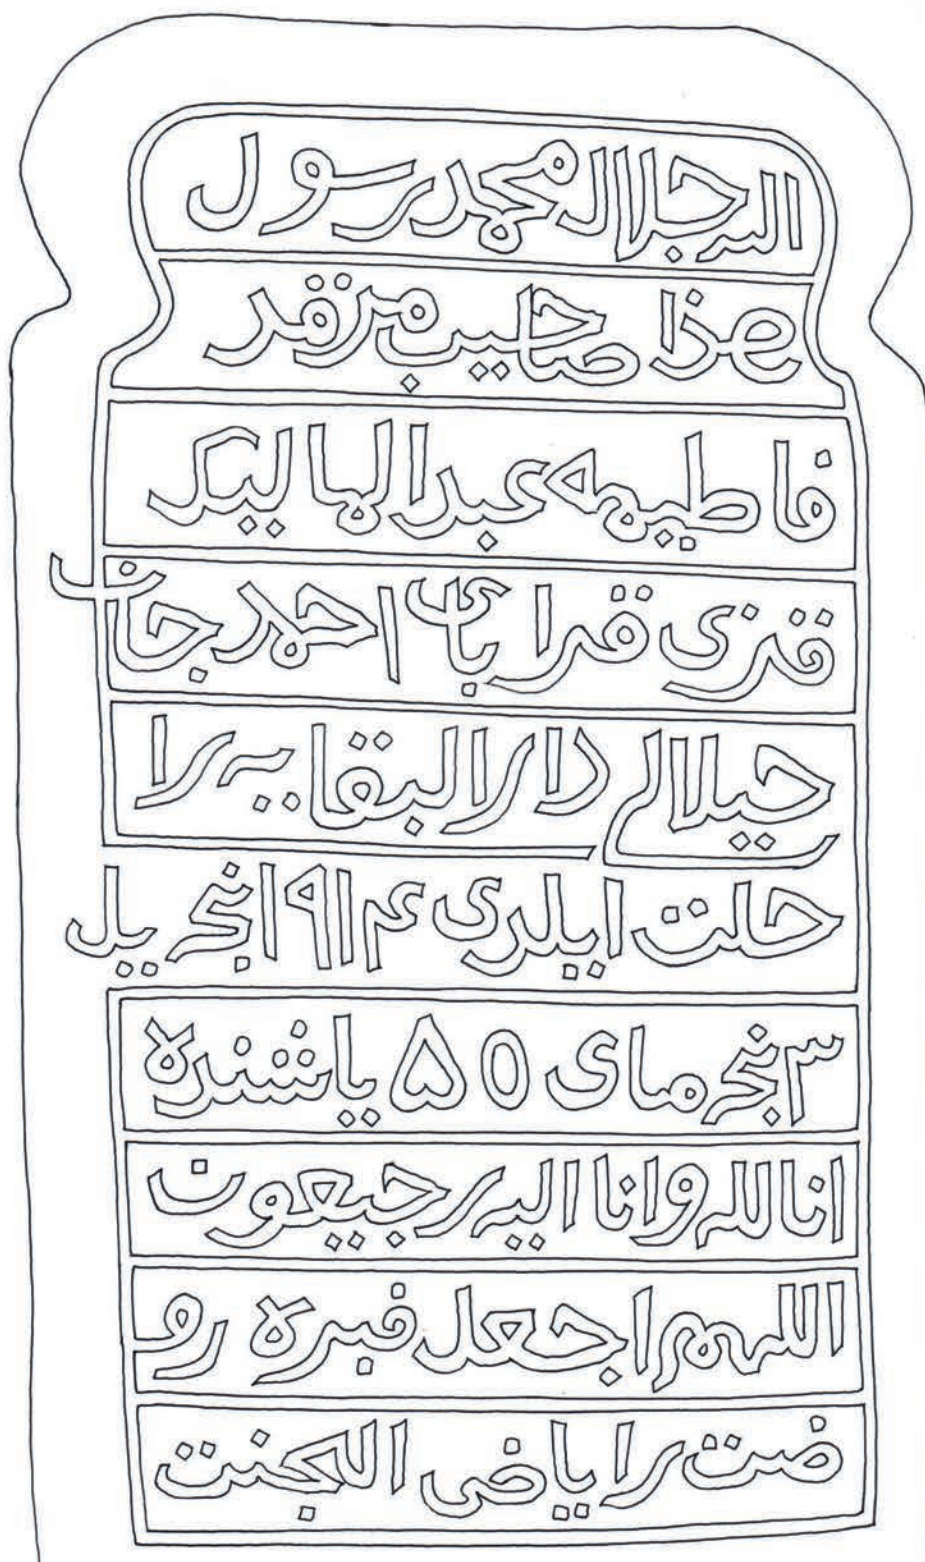 الله جلا له محمد رسول
هذا صاحيب مرقد
فاطيمه عبدالماليک
قزی قرابای احمدجان
حيلالے دارالبقايه را
حلت ايلدی ۱۹۱۴نجی ييل
۳نجی مای ۵۵ ياشنده
انالله وانا اليه رجيعون
اللهم اجعل قبره رو
ضت راياض الجنت